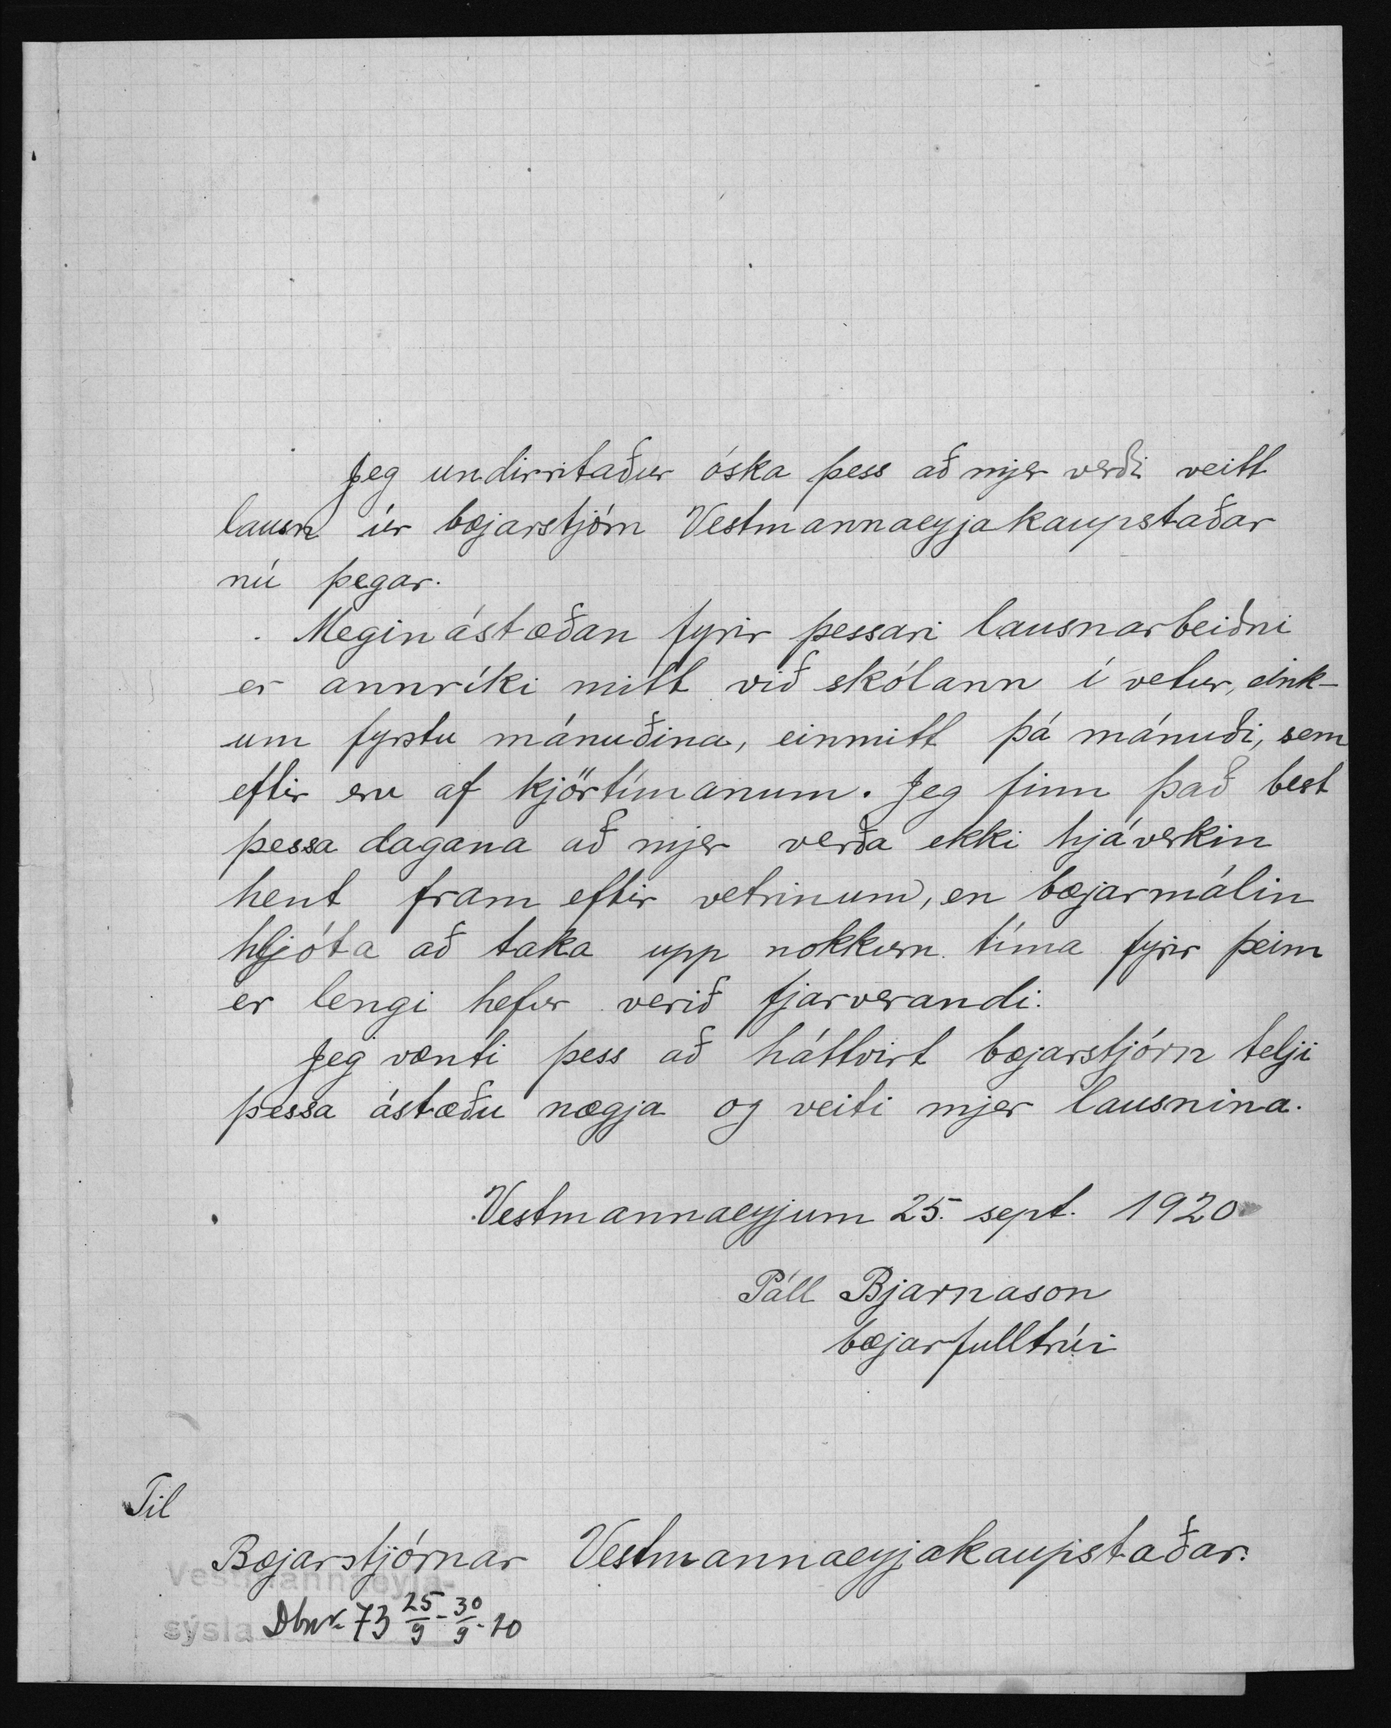 Jeg undirritaður óska þess að mjer verði veitt
lausn úr bæjarstjórn Vestmannaeyjakaupstaðar
nú þegar.
Meginástæðan fyrir þessari lausnarbeiðni
er annríki mitt við skólann í vetur, eink-
um fyrstu mánuðina, einmitt þá mánuði, sem
eftir eru af kjörtímanum. Jeg finn það best
þessa dagana að mjer verða ekki hjáverkin
hent fram eftir vetrinum, en bæjarmálin
hljóta að taka upp nokkurn tíma fyrir þeim
er lengi hefur verið fjarverandi.
Jeg vænti þess að háttvirt bæjarstjórn telji
þessa ástæðu nægja og veiti mjer lausnina.
Vestmannaeyjum 25. sept. 1920
Páll Bjarnason
bæjarfulltrúi
Til
Bæjarstjórnar Vestmannaeyjakaupstaðar.
Vestmannaeyja-
sýsla Dbnr. 73 25/9 - 30/9 - 20